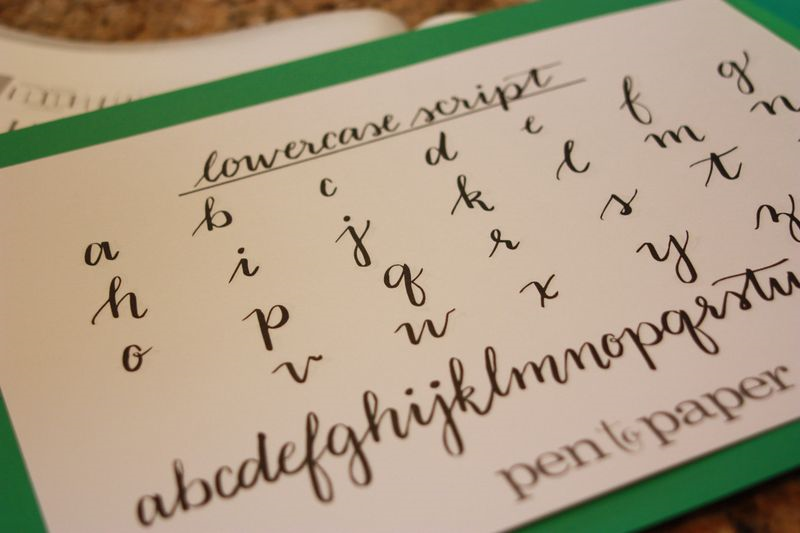 lowercase script
a b c d e f g
h i j k l m n
o p q r s t
v w x y z
abcdefghijklmnopqrstu
pen to paper